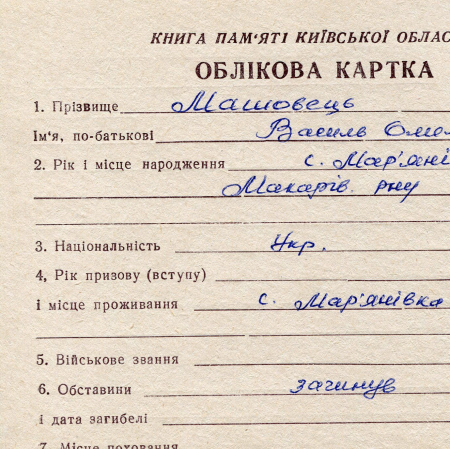 КНИГА ПАМ'ЯТІ КИЇВСЬКОЇ ОБЛАС
ОБЛІКОВА КАРТКА
1. Прізвище Машовець
Ім'я, по-батькові Василь Оме
2. Рік і місце народження с. Мар'яні
Макарів. рну
3. Національність Укр.
4, Рік призову (вступу)
і місце проживання с. Мар'янівка
5. Військове звання
6. Обставини загинув
і дата загибелі
7. Місце поховання